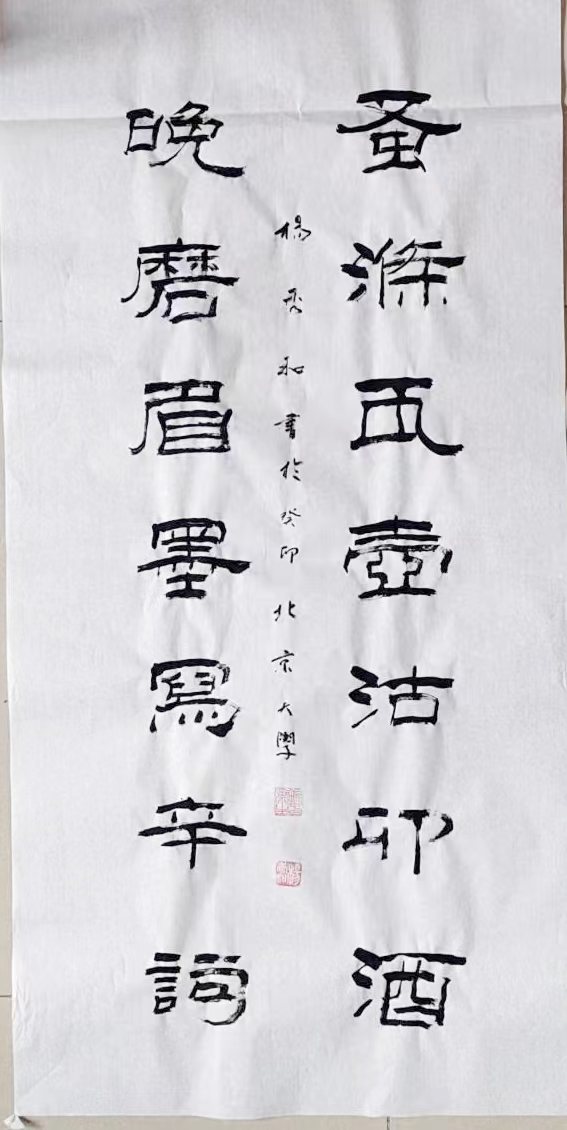 蚤滌瓦壺沽卯酒
晚磨眉墨寫辛詞
楊秀和書於癸卯北京大學